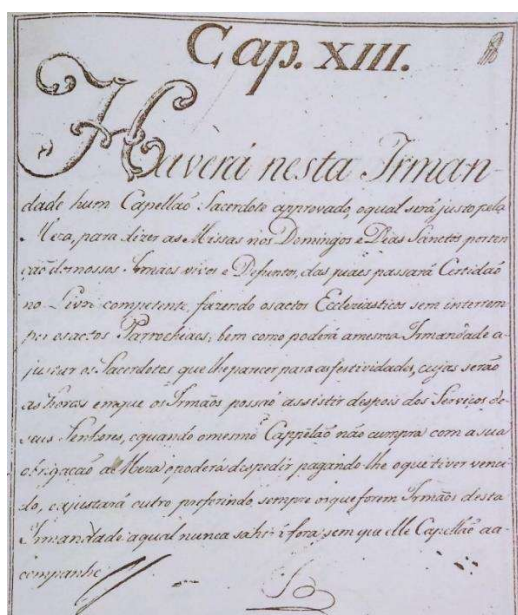 Cap. XIII.
Haverá nesta Irman-
dade hum Capellaõ Sacerdote approvado, oqual será justo pela
Meza, para dizer as Missas nos Domingos e Dias Sanctos por ten-
çaõ de nossos Irmaõs vivos e Defuntos, das quaes passará Certidaõ
no Livro competente, fazendo os actos Ecclesiasticos sem interrom-
per os actos Parrochiaes, bem como poderá a mesma Irmandade a-
justar os Sacerdotes que lhe parecer para as festividades, cujas seraõ
as horas em que os Irmaõs possaõ assistir despois dos Serviços de
seus Senhores, e quando o mesmo Cappelaõ naõ cumpra com a sua
obrigaçaõ a Meza o poderá despedir pagando lhe o que tiver venci-
do, e ajustará outro preferindo sempre os que forem Irmaõs desta
Irmandade a qual nunca sahirá fora, sem que elle Capellaõ a a-
companhe